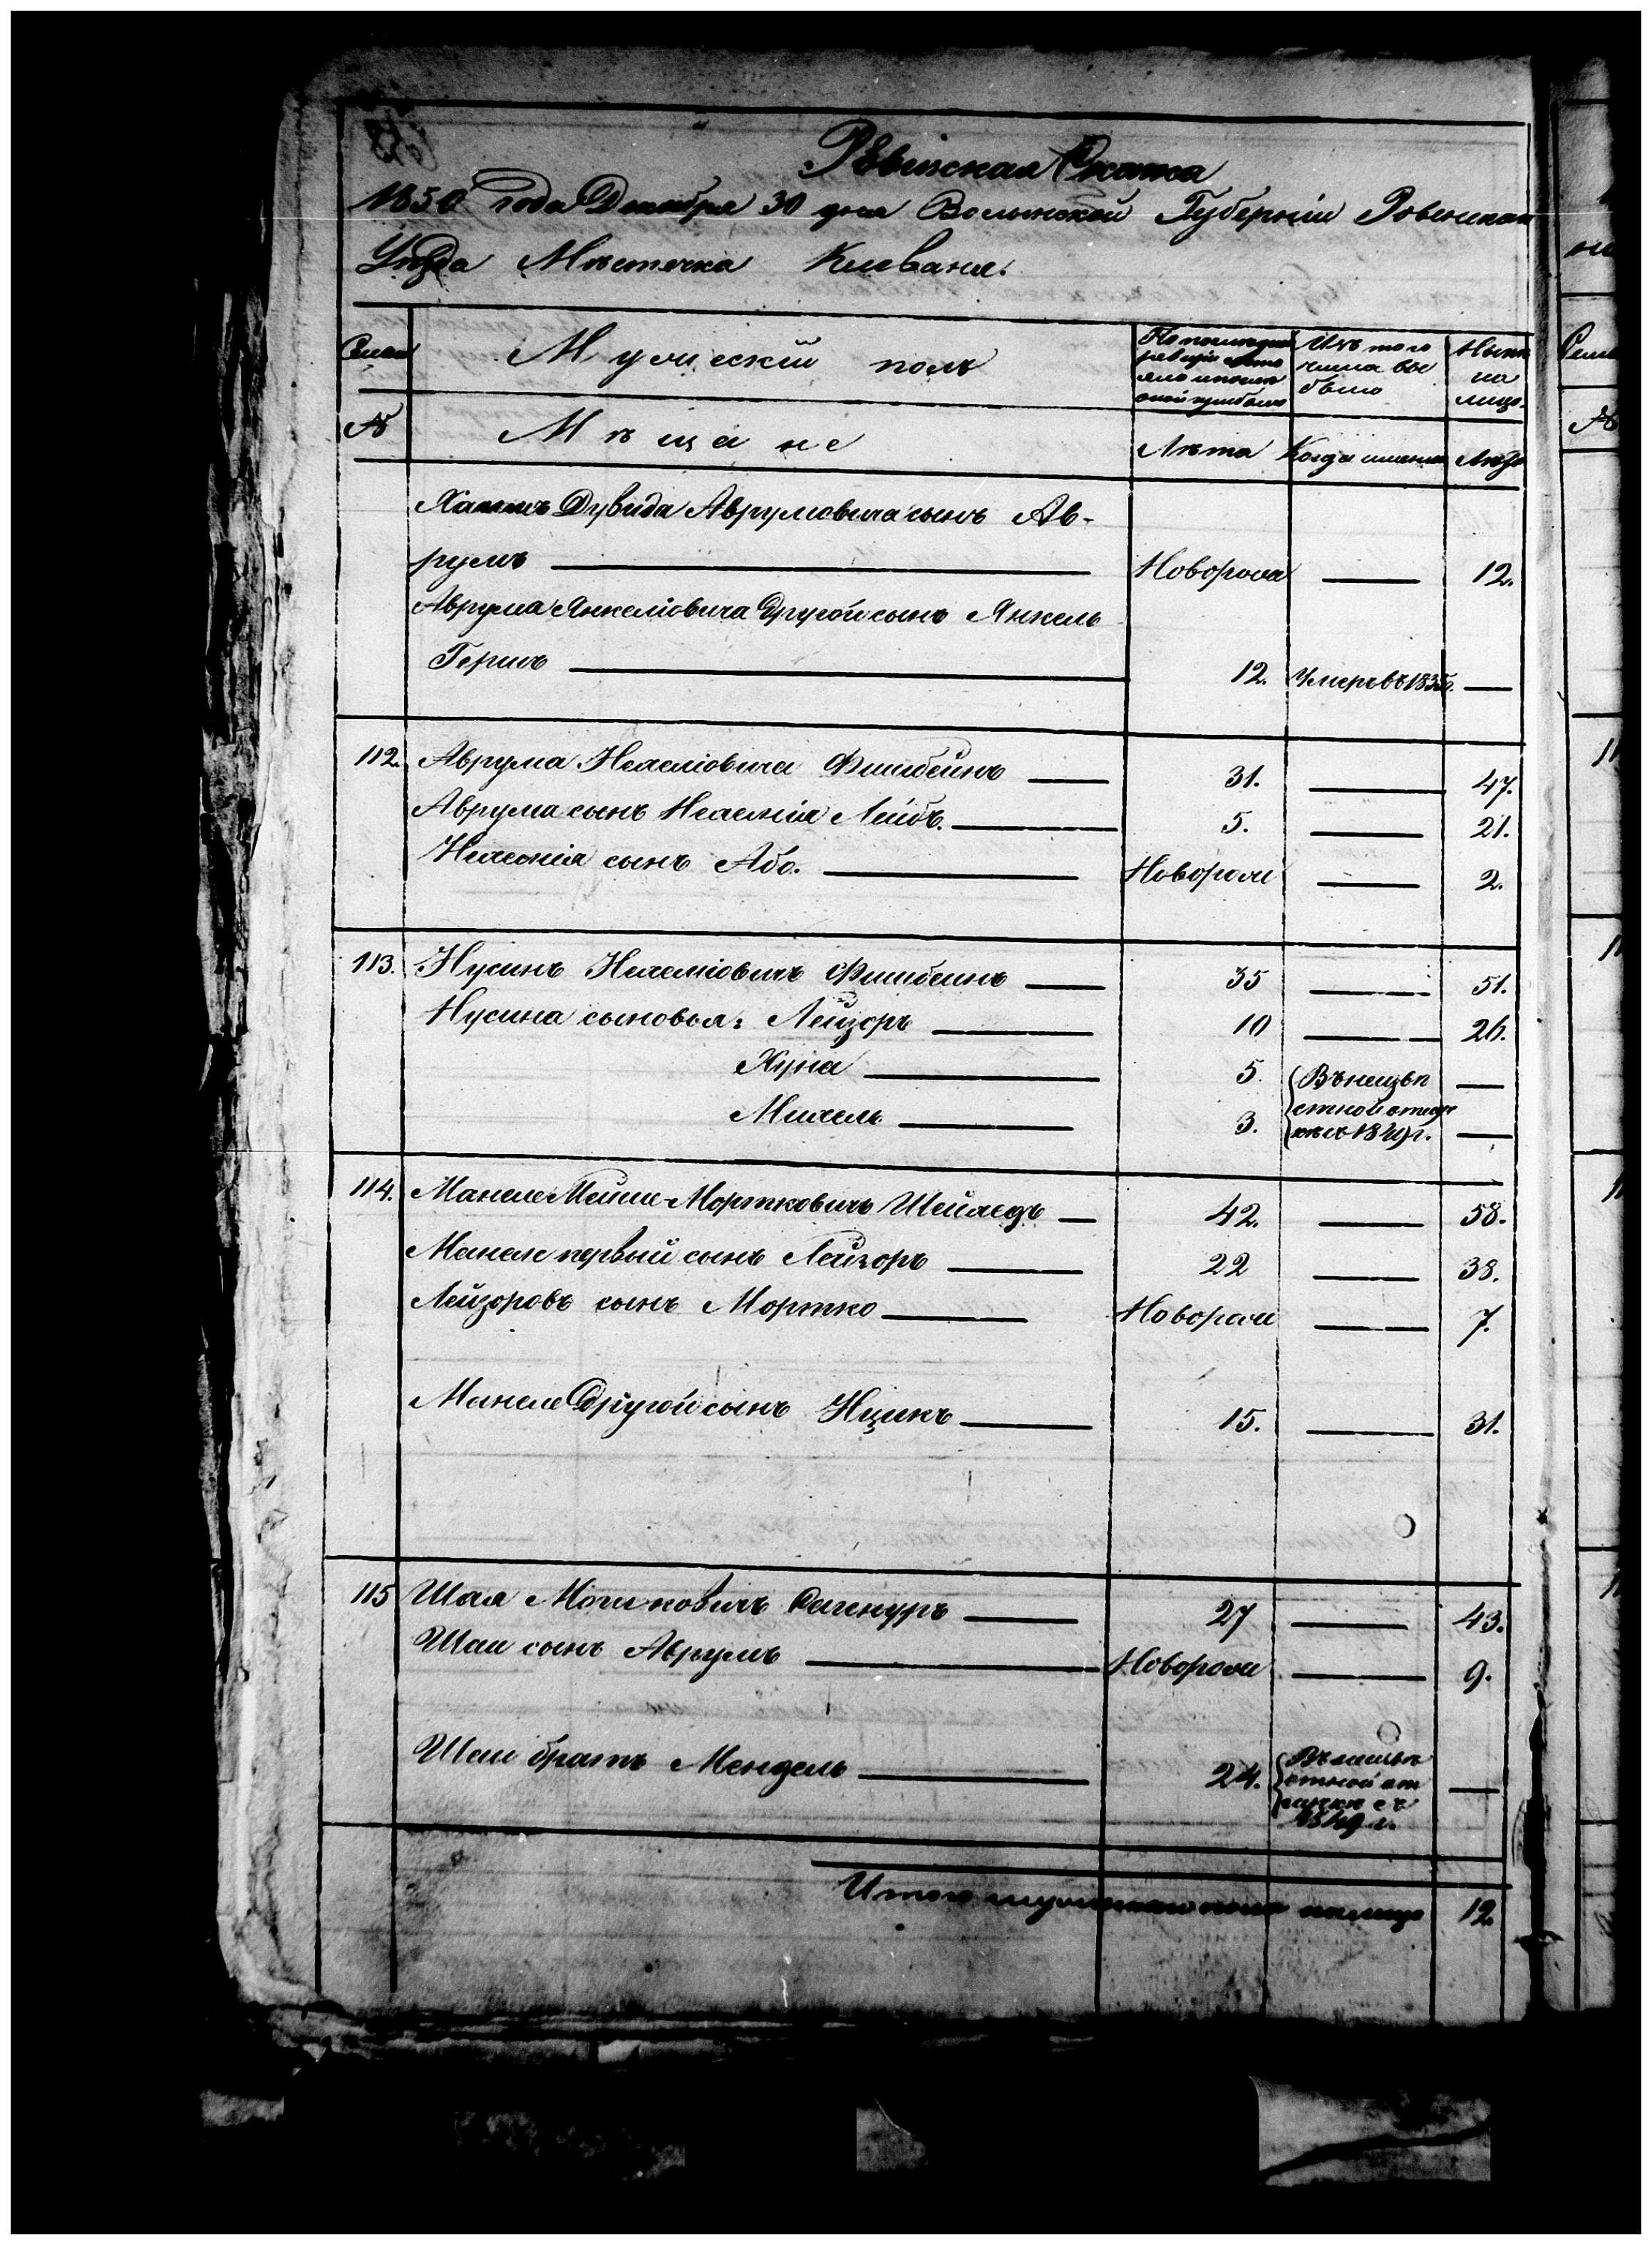 Ревизская Сказка
1850 года Декабря 30 дня Волынской Губернiи Ровенскаго
Уѣзда Мѣстечка Клеваня.
Семьи
Мужескiй полъ
По последней ревизiи состояло и после оной прибыло
Изъ того числа выбыло
Ныне на лицо.
№
Мѣщане
Лѣта
Когда именно
Лѣта
Хаимъ Дувида Аврумовича сынъ Ав-
румъ
Новорож
12.
Аврума Янкелiовича Другой сынъ Янкель
Гершъ
12.
Умеръ въ 1835г.
112.
Аврума Нехемiовича Фишбейнъ
31.
47.
Аврума сынъ Нехемiя Лейбъ.
5.
21.
Нехемiя сынъ Або.
Новорож
2.
113.
Нусинъ Нехемiовичъ Фишбеинъ
35
51.
Нусина сыновья: Лейзоръ
10
26.
Хуна
5.
Въ неизвѣ
Михель
3.
стной отлуч
кѣ съ 1849 г.
114.
Манеле Меише-Мортковичъ
42.
58.
Манеле первый сынъ Лейзоръ
22
38.
Лейзоровъ сынъ Мортко
Новорож
7.
Манеле Другой сынъ Ицикъ
15.
31.
115
Шая Мошковичъ
27
43.
Шаи сынъ Аврумъ
Новорож
9.
Шаи братъ Мендель
24.
Въ неизвѣ
стной от
лучке съ
1849 г.
Итого мужескаго пола налицо
12.